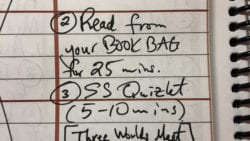 ② Read from
your BOOK BAG
for 25 mins.
③ SS Quizlet
(5-10 mins)
Three Worlds Meet